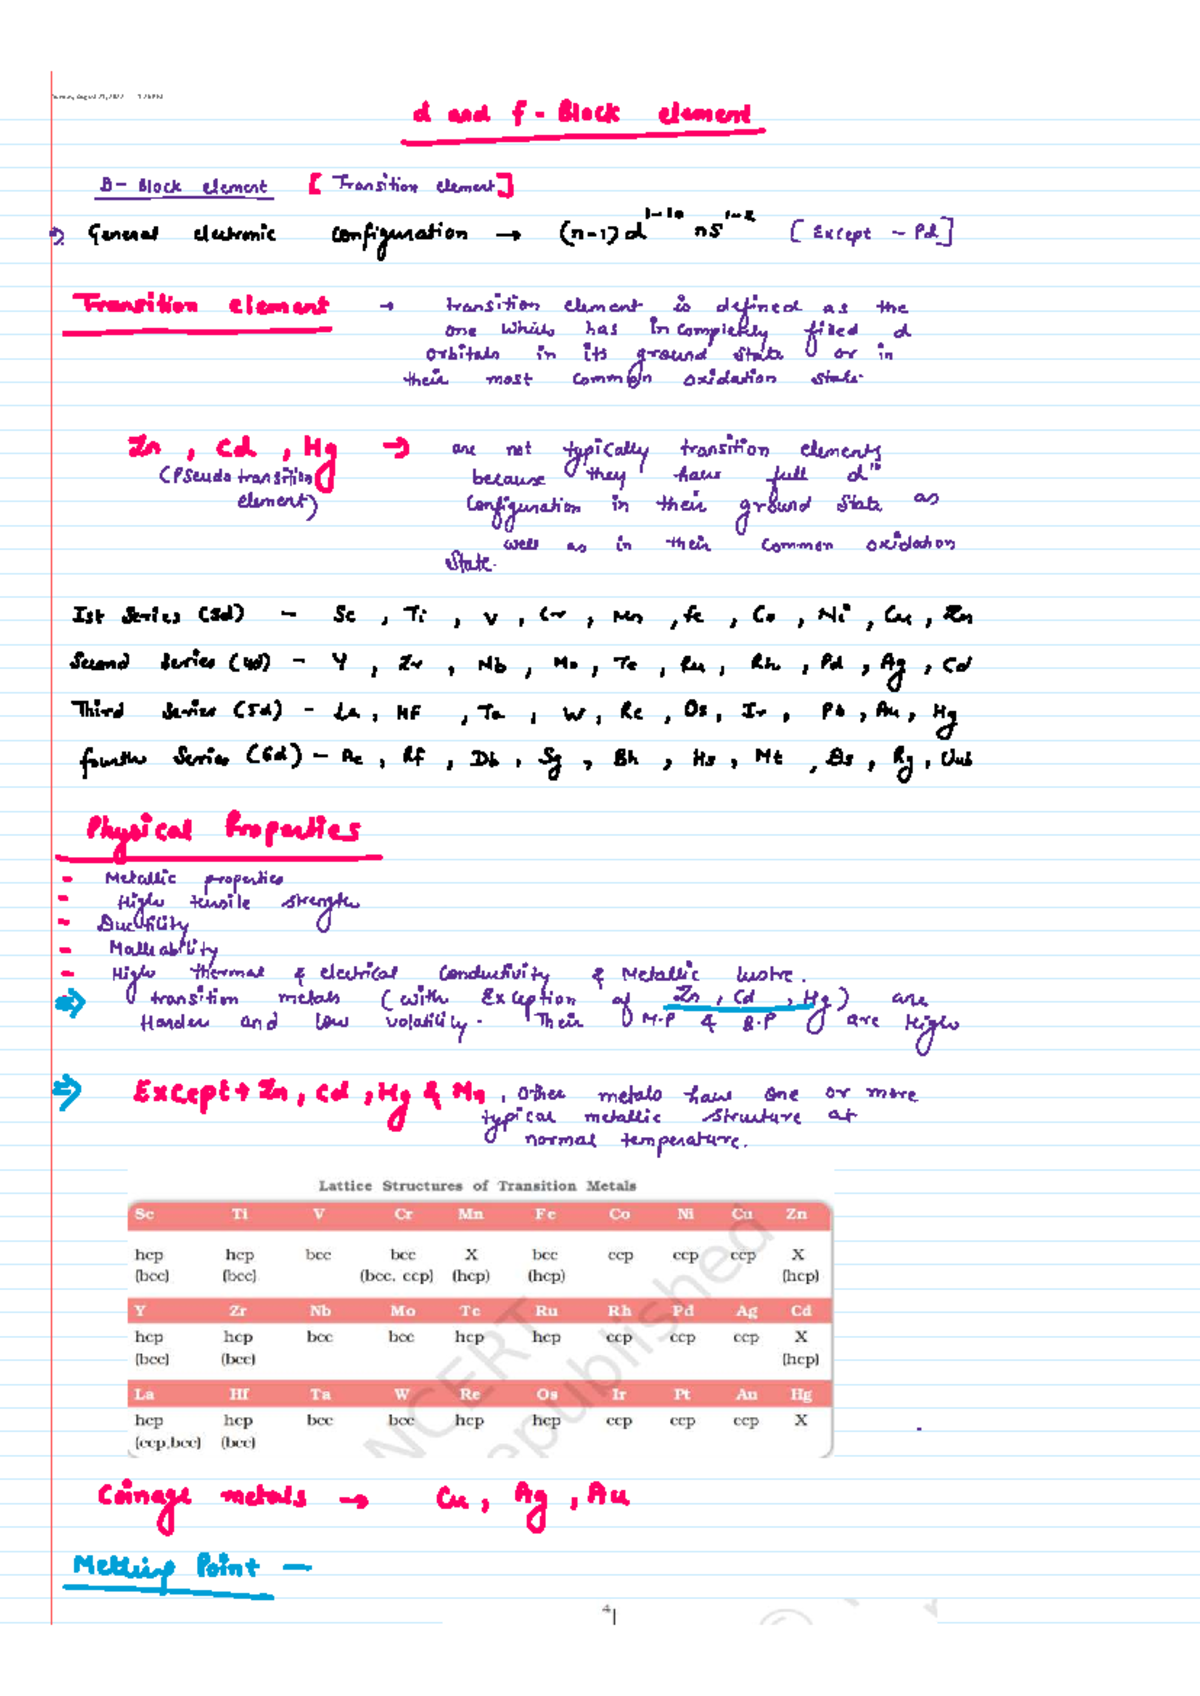 d and f - Block element
D - Block element [ Transition element ]
⇒ General electronic configuration → (n-1) d¹⁻¹⁰ ns¹⁻² [ Except - Pd ]
Transition element → transition element is defined as the
one which has incompletely filled d
orbitals in its ground state or in
their most common oxidation state.
Zn , Cd , Hg → are not typically transition elements
(Pseudo transition element) because they have full d¹⁰
configuration in their ground state as
well as in their common oxidation
state.
Ist Series (3d) - Sc , Ti , V , Cr , Mn , fe , Co , Ni , Cu , Zn
Second Series (4d) - Y , Zr , Nb , Mo , Tc , Ru , Rh , Pd , Ag , Cd
Third Series (5d) - La , HF , Ta , W , Re , Os , Ir , Pb , Au , Hg
fourth Series (6d) - Ac , Rf , Db , Sg , Bh , Hs , Mt , Ds , Rg , Uub
Physical Properties
- Metallic properties
- High tensile strength
- Ductility
- Malleability
- High thermal & electrical Conductivity & Metallic lustre.
⇒ transition metals (with Exception of Zn , Cd , Hg) are
Harder and low volatility. Their M.P & B.P are High
⇒ Except → Zn , Cd , Hg & Mn , other metals have one or more
typical metallic structure at
normal temperature.
Lattice Structures of Transition Metals
Sc Ti V Cr Mn Fe Co Ni Cu Zn
hcp hcp bcc bcc X bcc ccp ccp ccp X
(bcc) (bcc) (bcc, ccp) (hcp) (hcp) (hcp)
Y Zr Nb Mo Tc Ru Rh Pd Ag Cd
hcp hcp bcc bcc hcp hcp ccp ccp ccp X
(bcc) (bcc) (hcp)
La Hf Ta W Re Os Ir Pt Au Hg
hcp hcp bcc bcc hcp hcp ccp ccp ccp X
(ccp,bcc) (bcc)
NCERT
republished
Coinage metals → Cu , Ag , Au
Melting Point -
4